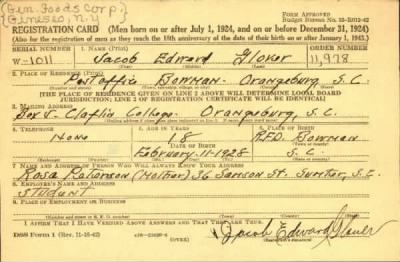 [Gen. Foods Corp.]
[Geneseo, N.Y.]
FORM APPROVED
REGISTRATION CARD—(Men born on or after July 1, 1924, and on or before December 31, 1924)
(Also for the registration of men as they reach the 18th anniversary of the date of their birth on or after January 1, 1943.)
SERIAL NUMBER
1. NAME (Print)
ORDER NUMBER
W-1011
Jacob Edward Glover
11,978
2. PLACE OF RESIDENCE (Print)
Post office Bowman. Orangeburg, S.C.
[THE PLACE OF RESIDENCE GIVEN ON LINE 2 ABOVE WILL DETERMINE LOCAL BOARD
JURISDICTION; LINE 2 OF REGISTRATION CERTIFICATE WILL BE IDENTICAL]
3. MAILING ADDRESS
Box J. Claflin College. Orangeburg, S.C.
4. TELEPHONE
5. AGE IN YEARS
6. PLACE OF BIRTH
None
18
R.F.D. Bowman
DATE OF BIRTH
February 11 1925
S.C.
7. NAME AND ADDRESS OF PERSON WHO WILL ALWAYS KNOW YOUR ADDRESS
Rosa (Mother) 36 St. Sumter, S.C.
8. EMPLOYER'S NAME AND ADDRESS
Student
9. PLACE OF EMPLOYMENT OR BUSINESS
I AFFIRM THAT I HAVE VERIFIED ABOVE ANSWERS AND THAT THEY ARE TRUE.
DSS Form 1 (Rev. 11-16-42)
(OVER)
Jacob Edward Glover